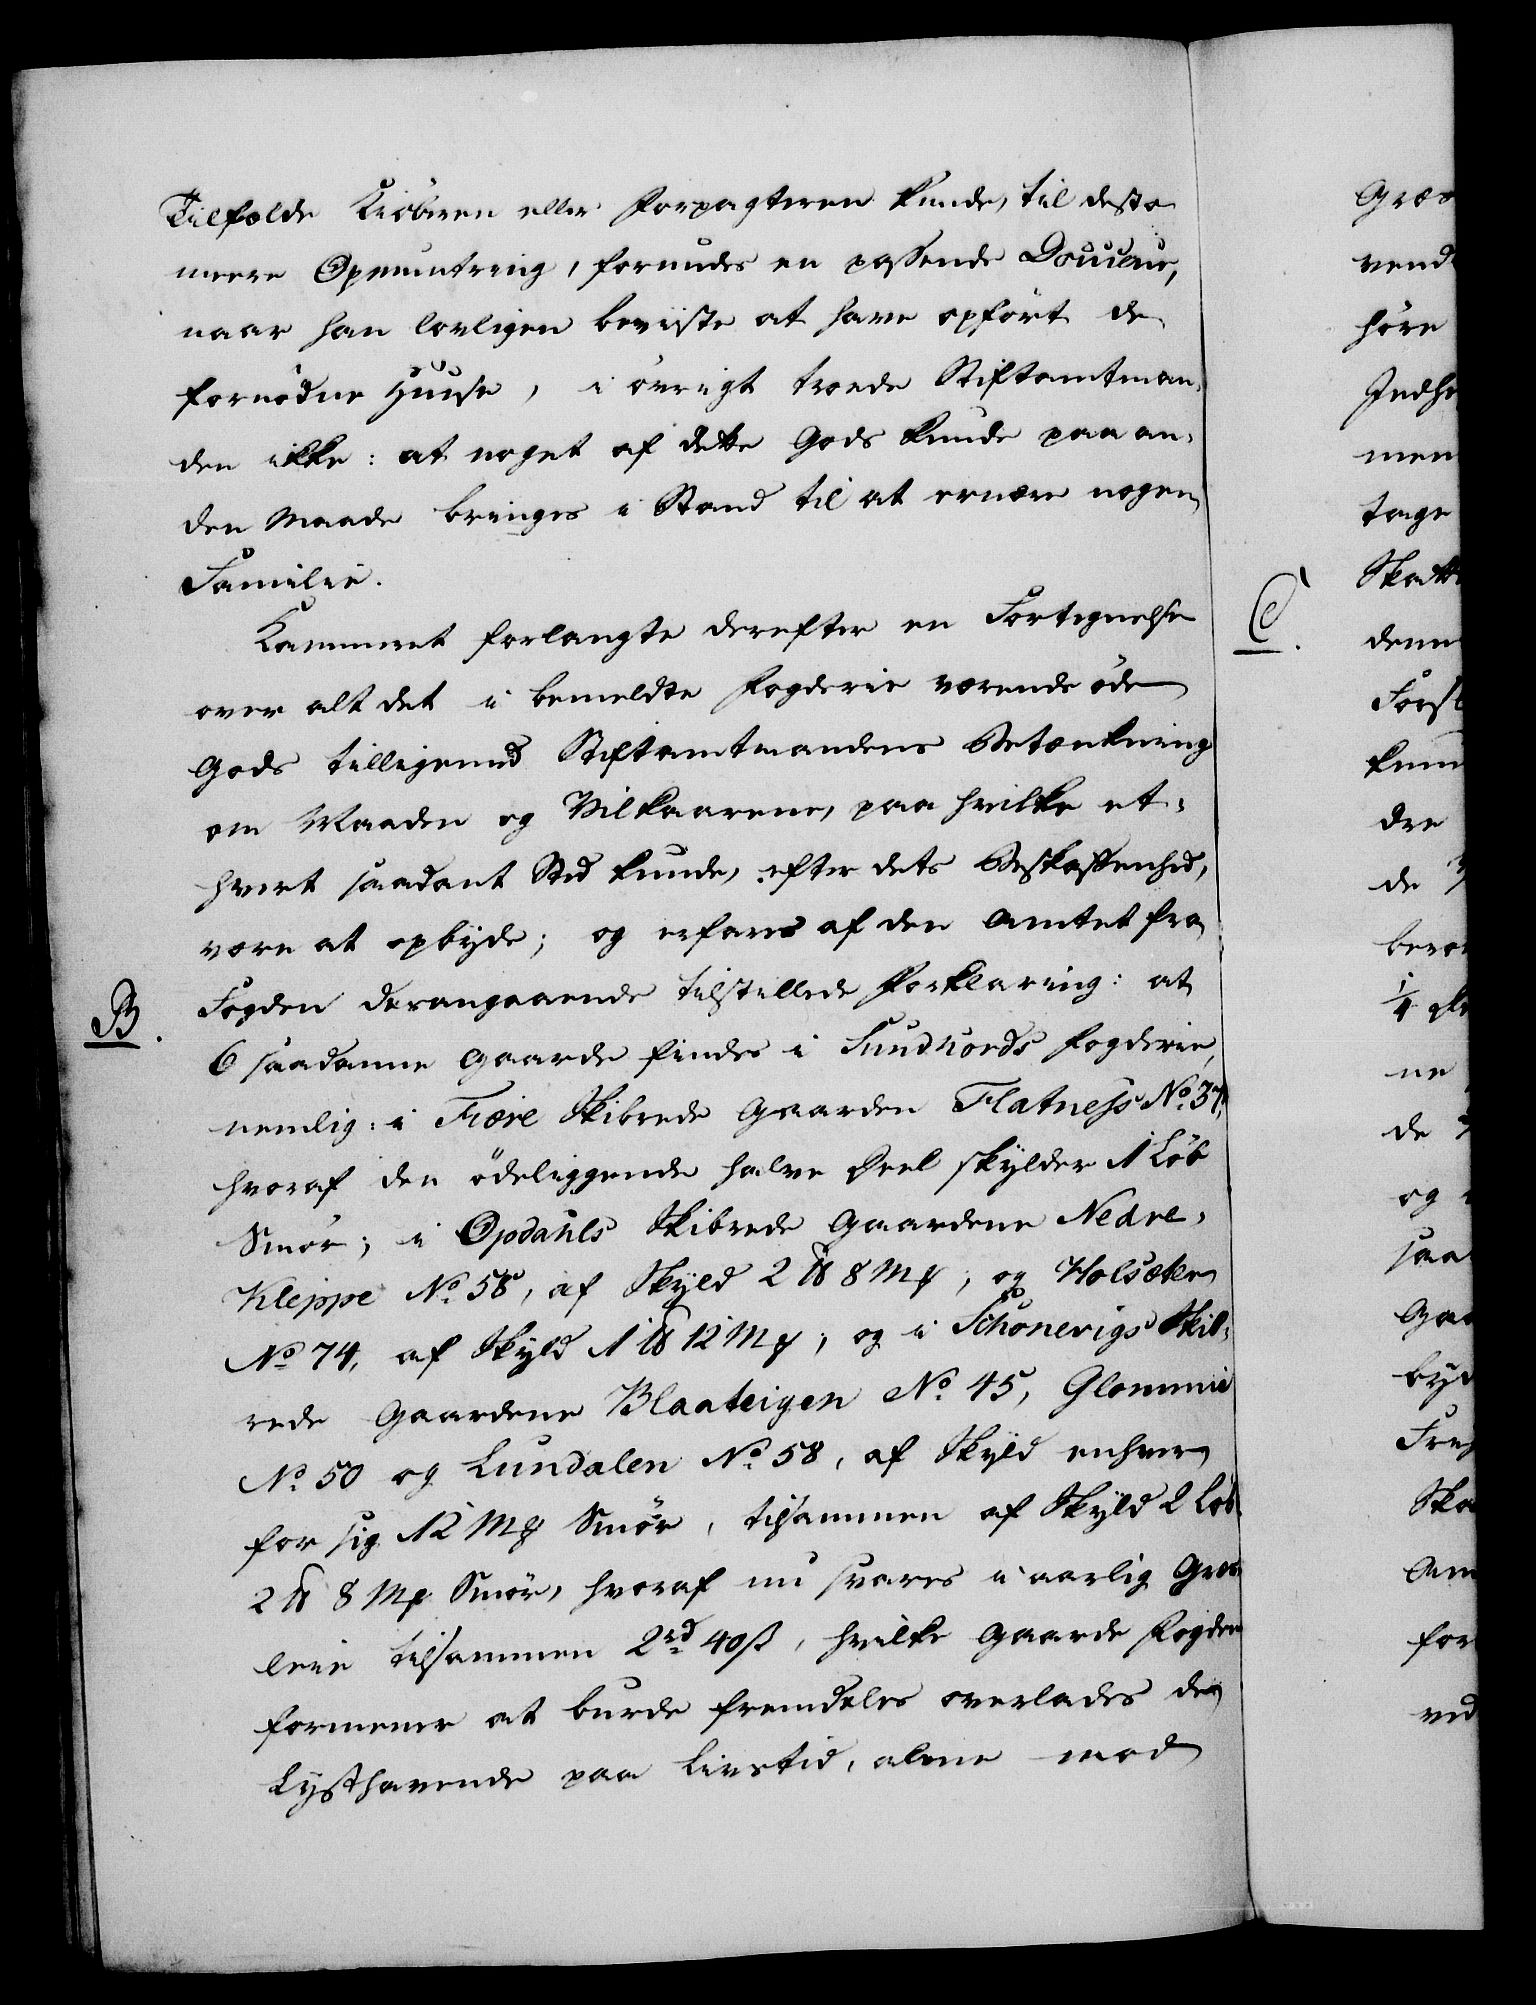 Tilfælde Kiöberen eller Forpagteren kunde, til desto
meere Opmuntring, forundes en passende Douceur,
naar han lovligen beviiste at have opført de
fornödne Huuse, i övrigt troede Stiftamtman-
den ikke: at noget af dette Gods kunde paa an-
den Maade bringes i Stand til at ernære nogen
Familie.
Kammeret forlangte derefter en Fortegnelse
over alt det i bemeldte Fogderie værende öde
Gods tilligemed Stiftamtmandens Betænkning
om Maaden og Vilkaarene, paa hvilke et-
hvert saadant Sted kunde, efter dets Beskaffenhed,
være at opbyde; og erfares af den Amtet fra
B. Fogden derangaaende tilstillede Forklaring: at
6 saadanne Gaarde findes i Sundhords Fogderie,
nemlig: i Fiære Skibrede Gaarden Flatness No. 37,
hvoraf den ödeliggende halve Deel skylder 1 Löb
Smör; i Opdahls Skibrede Gaardene Nedre-
Kleppe No. 58, af Skyld 2 ℔ 8 Mk; og Holsæker
No. 74, af Skyld 1 ℔ 12 Mk; og i Schonevigs Skib-
rede Gaardene Blaateigen No. 45, Glommi
No. 50 og Lundalen No. 58, af Skyld enhver
for sig 12 Mk Smör, tilsammen af Skyld 2 Löb
2 ℔ 8 Mk Smör, hvoraf nu svares i aarlig Græs-
leie tilsammen 2 rd 40 ß, hvilke Gaarde Fogden
formener at burde fremdeles overlades de
Lysthavende paa Livstid, alene mod
Græs
vend
höre
Indh
men
tage
Skatt
C. denn
Forst
kun
dre
de
1/4
ne
de
og
saa
Gaa
byd
Ska
Am
for
ved